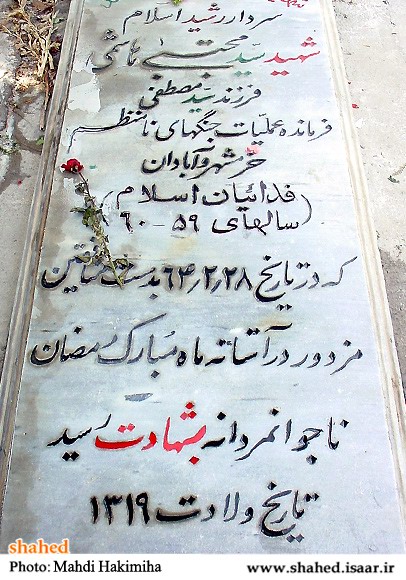 سردار رشید اسلام
شهید سید مجتبی هاشمی
فرزند سید مصطفی
فرمانده عملیات جنگهای نامنظم
خرمشهر و آبادان
(فدائیان اسلام
سالهای ۵۹-۶۰)
که در تاریخ ۶۴٫۲٫۲۸ بدست منافقین
مزدور در آستانه ماه مبارک رمضان
ناجوانمردانه بشهادت رسید
تاریخ ولادت ۱۳۱۹
shahed
Photo: Mahdi Hakimiha
www.shahed.isaar.ir